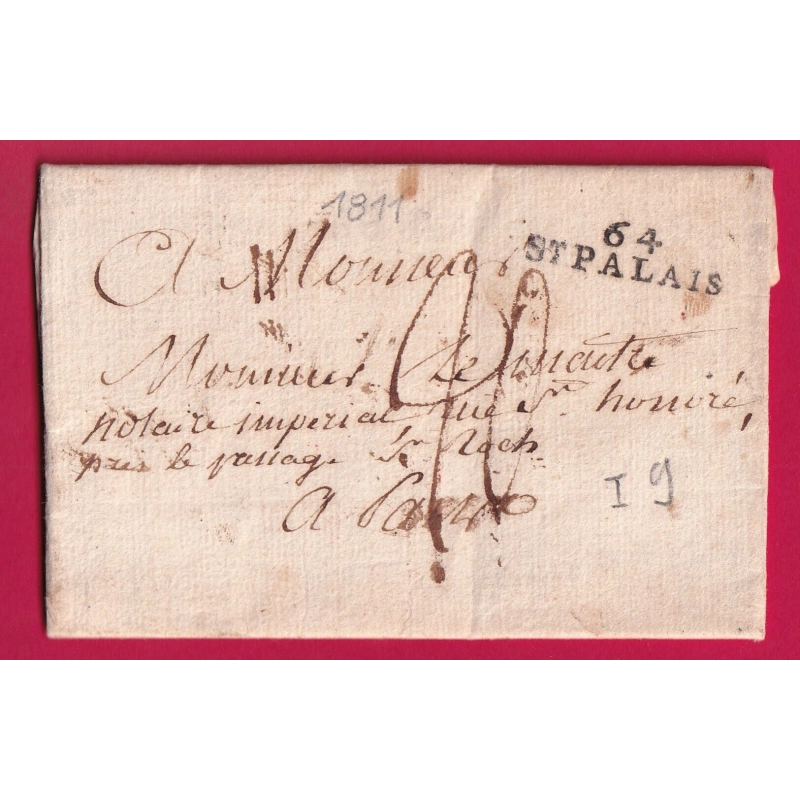 1811
64
STPALAIS
A Monsieur
Monsieur Lemaitre
notaire imperial rue St honoré,
près le passage St Roch
A Paris
I 9